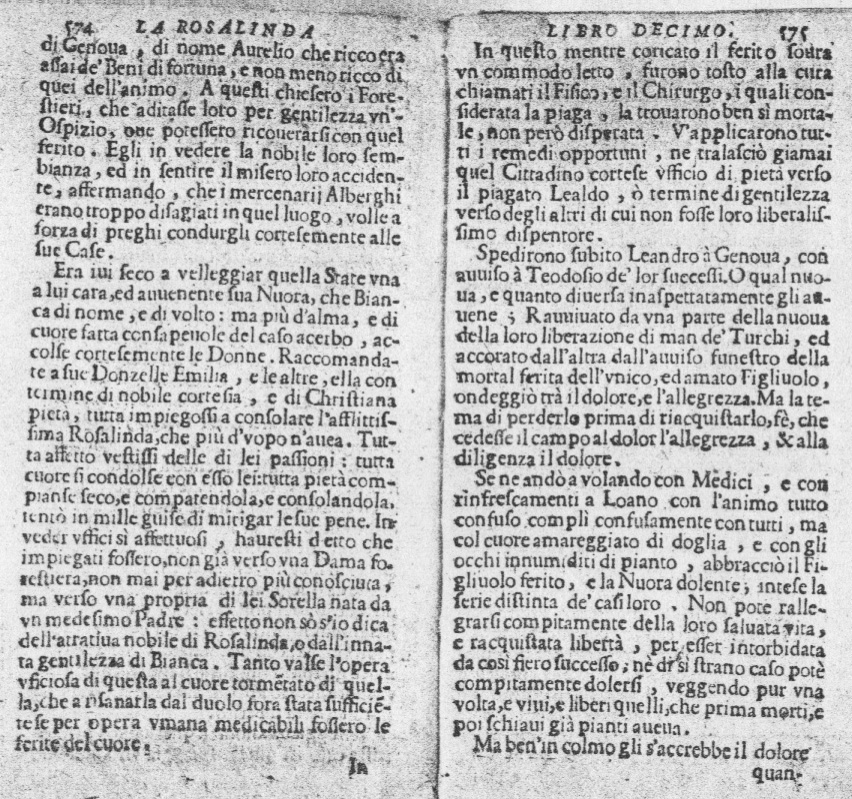 574 LA ROSALINDA
di Genoua, di nome Aurelio che ricco era
assai de' Beni di fortuna, e non meno ricco di
quei dell'animo. A questi chiesero i Fore-
stieri, che aditasse loro per gentilezza vn'
Ospizio, oue potessero ricouerarsi con quel
ferito. Egli in vedere la nobile loro sem-
bianza, ed in sentire il misero loro acciden-
te, affermando, che i mercenarij Alberghi
erano troppo disagiati in quel luogo, volle a
forza di preghi condurgli cortesemente alle
sue Case.
Era iui seco a velleggiar quella State vna
a lui cara, ed auuenente sua Nuora, che Bian-
ca di nome, e di volto: ma più d'alma, e di
cuore fatta consapeuole del caso acerbo, ac-
colse cortesemente le Donne. Raccomanda-
te a sue Donzelle Emilia, e le altre, ella con
termine di nobile cortesia, e di Christiana
pietà, tutta impiegossi a consolare l'afflittis-
sima Rosalinda, che più d'vopo n'auea. Tut-
ta affetto vestissi delle di lei passioni: tutta
cuore si condolse con esso lei: tutta pietà com-
pianse seco, e compatendola, e consolandola,
tentò in mille guise di mitigar le sue pene. In
veder vffici sì affettuosi, hauresti detto che
impiegati fossero, non già verso vna Dama fo-
restiera, non mai per adietro più conosciuta,
ma verso vna propria di lei Sorella nata da
vn medesimo Padre: effetto non sò s'io dica
dell'atratiua nobile di Rosalinda, o dall'inna-
ta gentilezza di Bianca. Tanto valse l'opera
vficiosa di questa al cuore tormētato di quel-
la, che a risanarla dal duolo fora stata sufficiē-
te se per opera vmana medicabili fossero le
ferite del cuore.
In
LIBRO DECIMO. 575
In questo mentre coricato il ferito soura
vn commodo letto, furono tosto alla cura
chiamati il Fisico, e il Chirurgo, i quali con-
siderata la piaga, la trouarono ben sì morta-
le, non però disperata. V'applicarono tut-
ti i remedi opportuni, ne tralasciò giamai
quel Cittadino cortese vfficio di pietà verso
il piagato Lealdo, ò termine di gentilezza
verso degli altri di cui non fosse loro liberalis-
simo dispentore.
Spedirono subito Leandro à Genoua, con
auuiso à Teodosio de' lor successi. O qual nuo-
ua, e quanto diuersa inaspettatamente gli au-
uene; Rauuiuato da vna parte della nuoua
della loro liberazione di man de' Turchi, ed
accorato dall'altra dall'auuiso funestro della
mortal ferita dell'vnico, ed amato Figliuolo,
ondeggiò trà il dolore, e l'allegrezza. Ma la te-
ma di perderlo prima di riacquistarlo, fè, che
cedesse il campo al dolor l'allegrezza, & alla
diligenza il dolore.
Se ne andò a volando con Medici, e con
rinfrescamenti a Loano con l'animo tutto
confuso complì confusamente con tutti, ma
col cuore amareggiato di doglia, e con gli
occhi innumiditi di pianto, abbracciò il Fi-
gliuolo ferito, e la Nuora dolente; intese la
serie distinta de' casi loro. Non pote ralle-
grarsi compitamente della loro saluata vita,
e racquistata libertà, per esser intorbidata
da così fiero successo; nè di sì strano caso potè
compitamente dolersi, veggendo pur vna
volta, e viui, e liberi quelli, che prima morti, e
poi schiaui già pianti aueua.
Ma ben'in colmo gli s'accrebbe il dolore
quan-